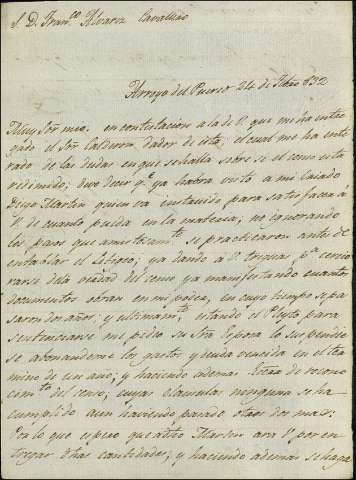 S. D. Fran.co Alvarez Cavallero
Arroyo del Puerco 24 de 832
Muy Sor mio: en contestacion a la de V. que me ha entre
gado el Sor Calderon dador de esta, el cual me ha ente
rado de las dudas en que se halla sobre si el censo esta
redimido; devo decir q.e ya habra visto a mi Cuñado
Diego Martin quien va instruido para satisfacer á
V. de cuanto pueda en la materia, no ignorando
los pasos que amistosam.te se practicaron antes de
entablar el ya dando á V. treguas p.a cercio
rarse de la del censo ya manifestando cuantos
documentos obran en mi poder, en cuyo tiempo se pa
saron dos años; y ultimam.te estando el Pleyto para
sentenciarse me pidio su Sra Esposa lo suspendiese
abonandome los gastos y deuda vencida en el ter
mino de un año; y haciendo ademas Escra de recono
cim.to del censo, cuyas clausulas ninguna se ha
cumplido aun haviendo pasado otros dos mas:
Por lo que espero que a dho Martin ara V. por en
tregar dhas cantidades; y haciendo ademas se haga